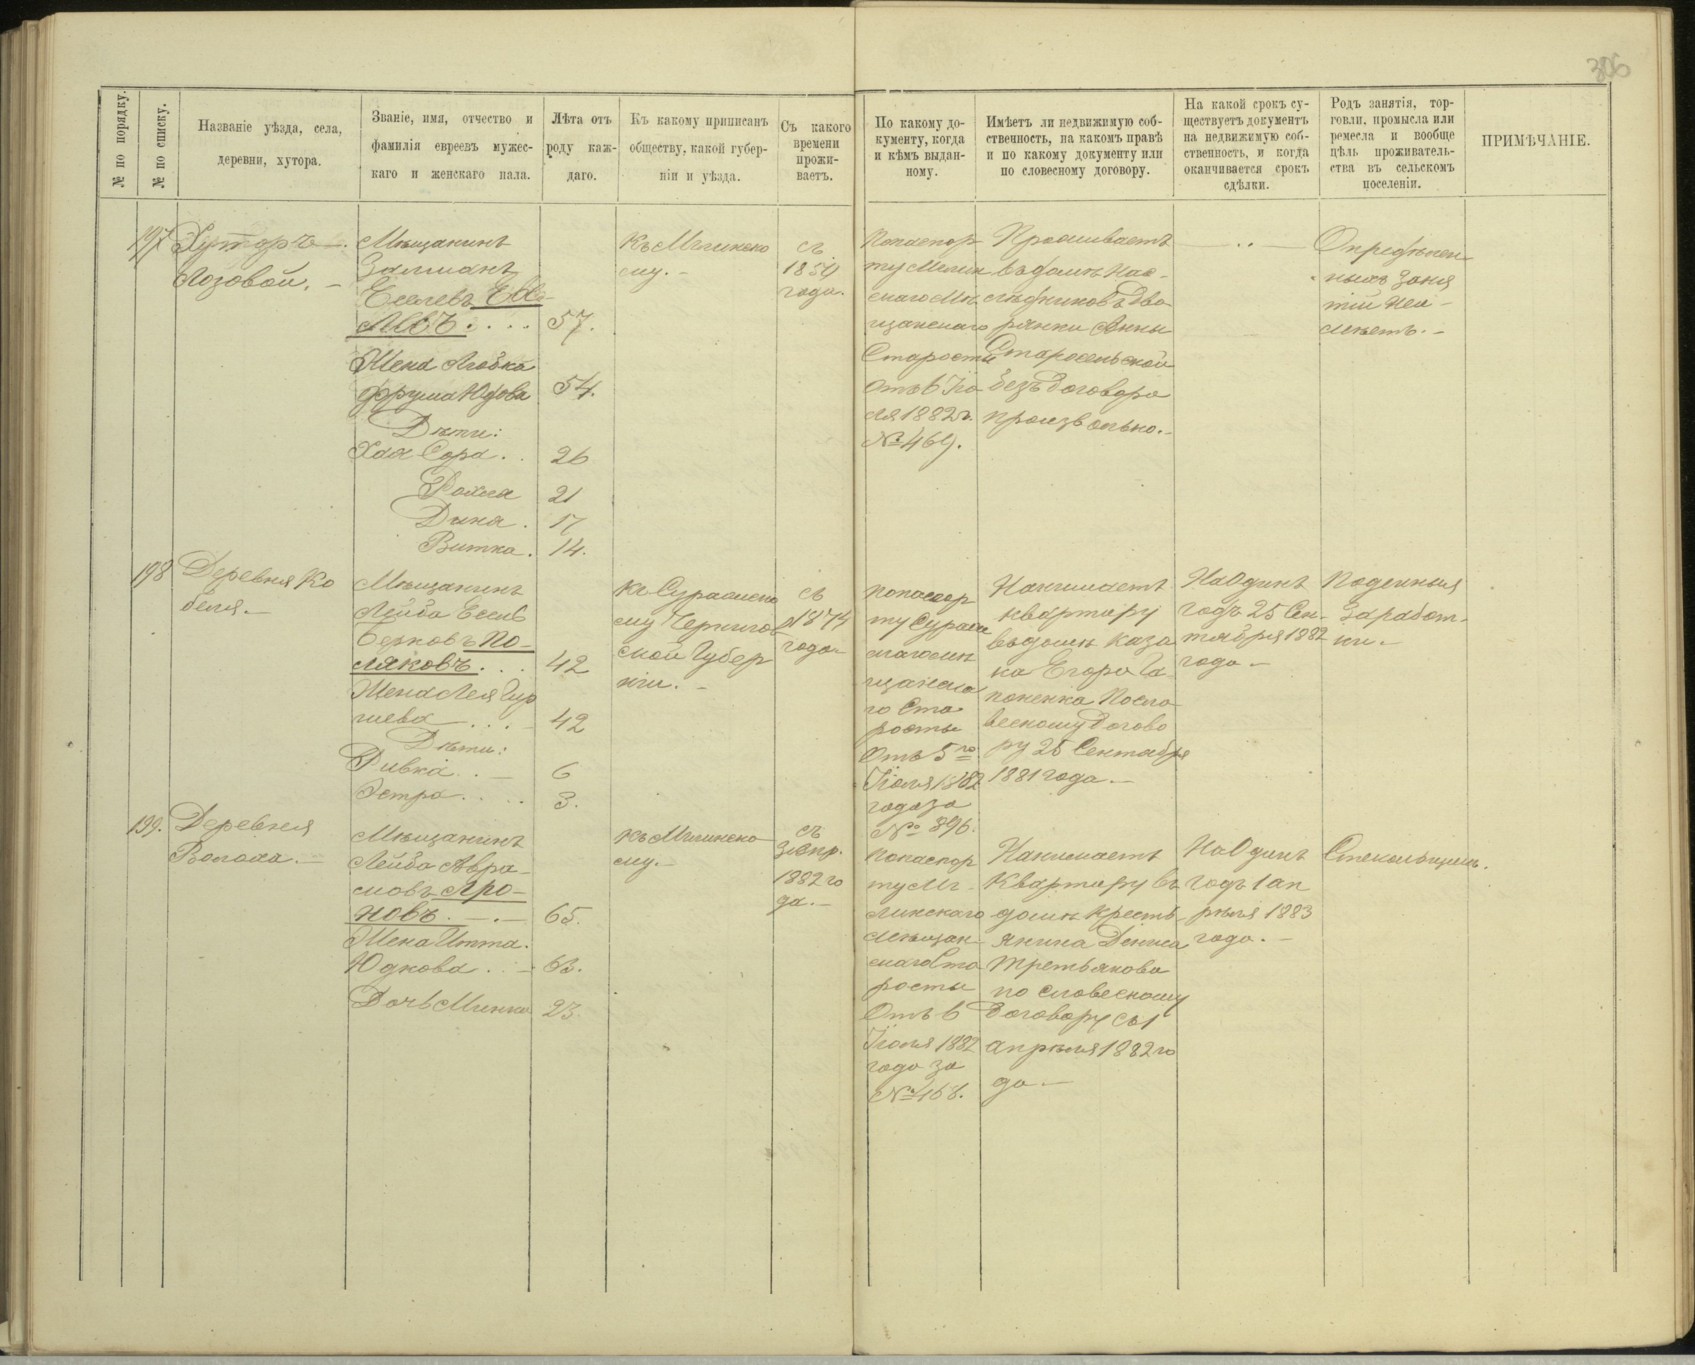 306
№ по порядку.
№ по списку.
Названіе уѣзда, села,
деревни, хутора.
Званіе, имя, отчество и
фамилія евреевъ мужес-
каго и женскаго пала.
Лѣта отъ
роду каж-
даго.
Къ какому приписанъ
обществу, какой губер-
ніи и уѣзда.
Съ какого
времени
прожи-
ваетъ.
По какому до-
кументу, когда
и кѣмъ выдан-
ному.
Имѣетъ ли недвижимую соб-
ственность, на какомъ правѣ
и по какому документу или
по словесному договору.
На какой срокъ су-
ществуетъ документъ
на недвижимую соб-
ственность, и когда
оканчивается срокъ
сдѣлки.
Родъ занятія, тор-
говли, промысла или
ремесла и вообще
цѣль проживатель-
ства въ сельскомъ
поселеніи.
ПРИМѢЧАНІЕ.
197
Хуторъ
Лозовой.
Мѣщанинъ
Залманъ
Еселевъ
57.
Жена Любка
Фрума Юдова
54.
Дѣти:
Хая Сора
26
Рохля
21
Дина
17
Витка
14.
Къ Мглинско
му.
съ
года.
По паспор
ту Мглин
скаго Мѣ
щанскаго
Старосты
отъ 6 Iю
ля 1882 г.
№ 469.
Проживаетъ
въ домѣ Нас-
лѣдниковъ Дво
рянки Анны
Старосельской
безъ договора
произвольно.
Опредѣлен
ныхъ заня
тій неи-
мѣетъ.
198
Деревня Ко
беля.
Мѣщанинъ
Лейба Есель
Берковъ По-
ляковъ
42
Жена Лея Гур
гиева
42
Дѣти:
Ривка
6
Эстра
3.
Къ Суражско
му Чернигов
ской Губер
ніи.
съ
1874
года
По паспор
ту Сураж
скаго мѣ
щанска
го Ста
росты
отъ 5го
Iюля 1882
года за
№ 396.
Нанимаетъ
квартиру
въ домѣ каза
ка Егора Га
поненка По сло
весному догово
ру 25 Сентября
1881 года.
На Одинъ
годъ 25 Сен-
тября 1882
года
Поденныя
заработ-
ки.
199.
Деревня
Волока.
Мѣщанинъ
Лейба Авра-
мовъ Аро-
новъ.
65.
Жена Итта
Юдкова
63.
Дочь Минка
23.
Къ Мглинско
му.
съ
1882 го
да.
По паспор
ту Мг-
линскаго
мѣщан-
скаго Ста
росты
отъ 6
Iюля 1882
года за
№ 468.
Нанимаетъ
Квартиру въ
домѣ Кресть
янина Дениса
Третьякова
по словесному
договору съ 1
апрѣля 1882 го
да.
На Одинъ
годъ 1 ап
рѣля 1883
года.
Стекольщикъ.